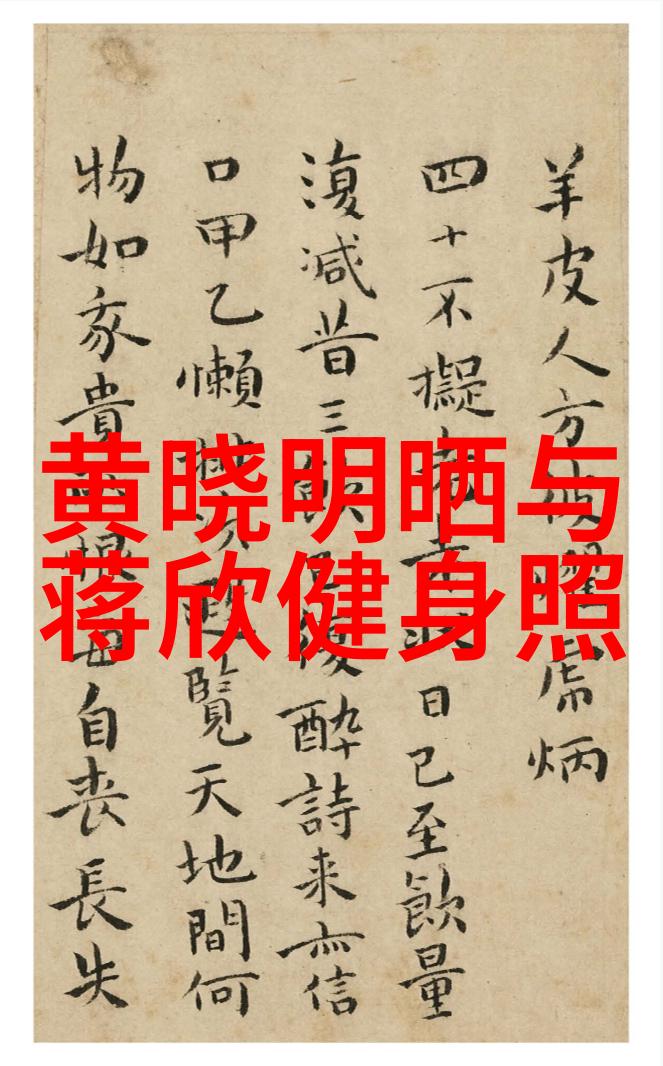 黄晓明晒与
蒋欣健身照
羊皮人方炳
四十不擬日已至飲量
復減昔三復醉詩来亦信
口甲乙懶覽天地間何
物如豕貴恨毋自丧長失